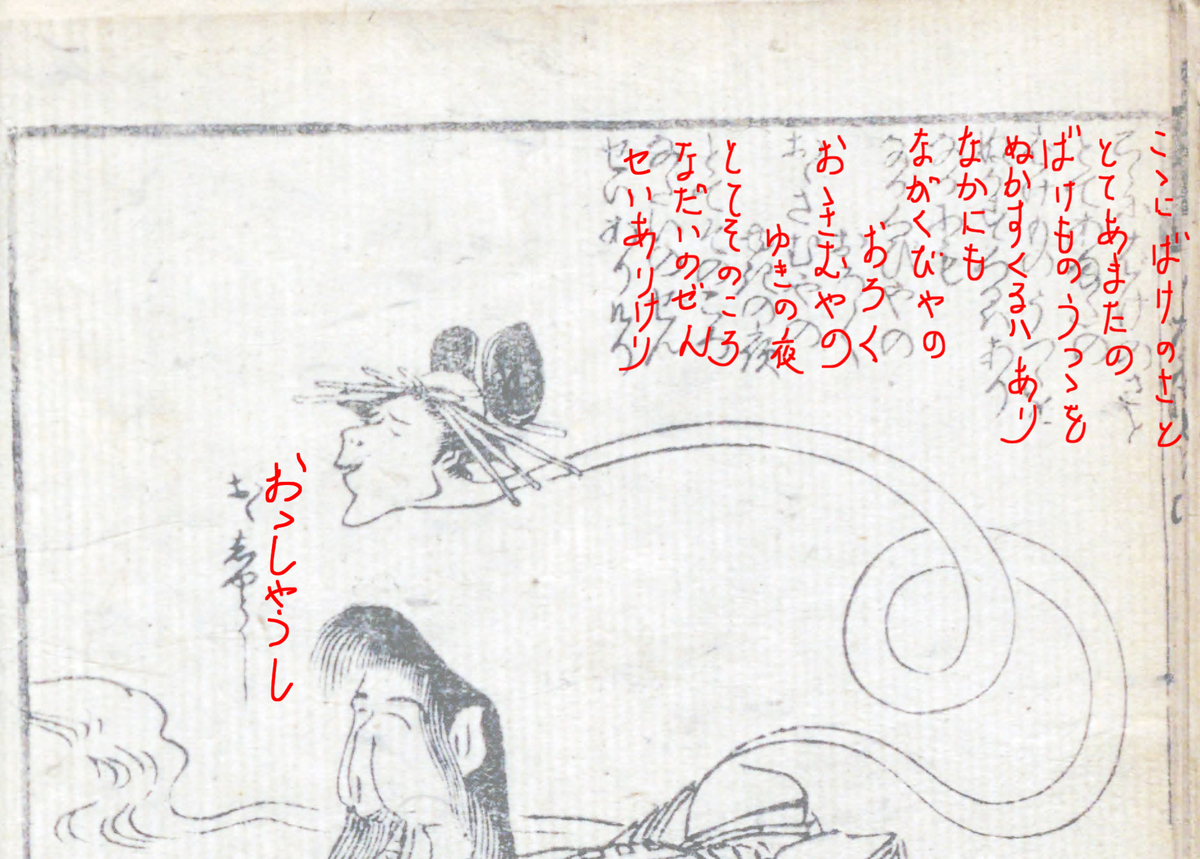 こゝにばけのさと
とてあまたの
ばけものうつゝを
ぬかすくるハあり
なかにも
ながくびやの
おろく
おゝさむやの
ゆきの夜
とてそのころ
なだいのぜん
せいありけり
おゝしやうし